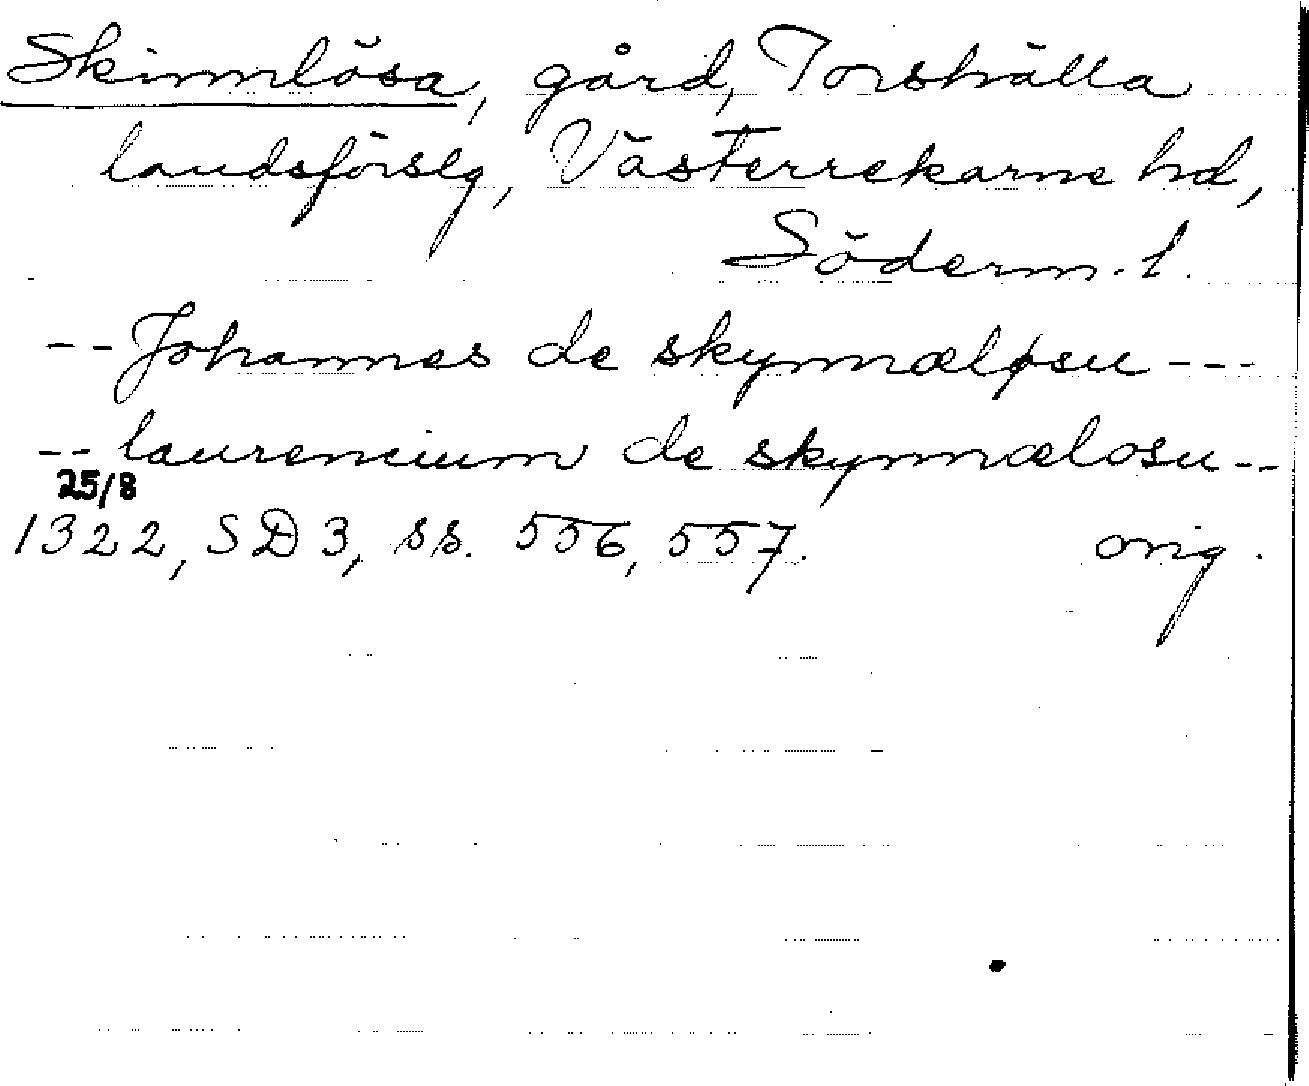 Skinnlösa, gård, Torshälla
landsförslg, Västerrekarne hd,
Söderm. l.
-- Johannes de skynnæløsu ---
-- laurencium de skynnælosu --
25/8
1322, SD 3, ss. 556, 557. orig.